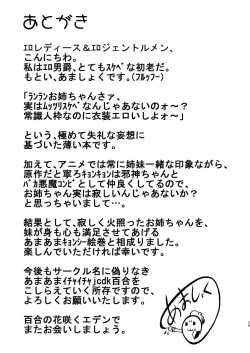 あとがき
ｴﾛレディース＆ｴﾛジェントルメン、
こんにちわ。
私はｴﾛ男爵、とてもｽｹﾍﾞな初老だ。
もとい、あましょくです。(ﾌﾙｯﾌｰ)
「ﾗﾝﾗﾝお姉ちゃんさァ、
実はﾑｯﾂﾘｽｹﾍﾞなんじゃあないのォ～？
常識人枠なのに衣装エロいしよォ～」
という、極めて失礼な妄想に
基づいた薄い本です。
加えて、アニメでは常に姉妹一緒な印象ながら、
原作だと寧ろｷｮﾝｷｮﾝは邪神ちゃんと
ﾊﾞｶ悪魔コンビとして仲良くしてるので、
お姉ちゃん実は寂しいんじゃあないか？
と思っちゃいまして…。
結果として、寂しく火照ったお姉ちゃんを、
妹が身も心も満足させてあげる
あまあまｷｮﾝｼｰ絵巻と相成りました。
楽しんでいただければ幸いです。
今後もサークル名に偽りなき
あまあまｲﾁｬｲﾁｬjcdk百合を
こしらえていく所存ですので、
よろしくお願いいたします。
百合の花咲くエデンで
またお会いしましょう。
あましょく